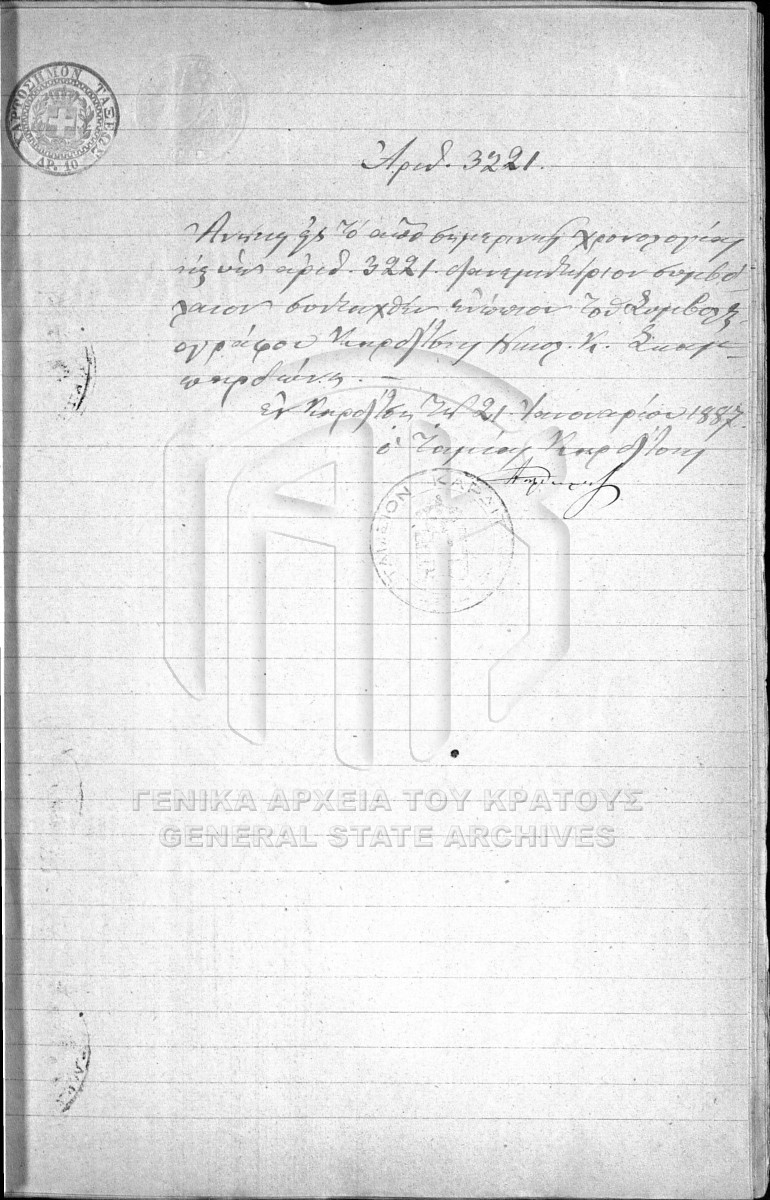 ΧΑΡΤΟΣΗΜΟΝ ΤΑΞΕΩΣ
ΔΡ. 10
Αριθ. 3221.
Ανήκει εις το από σημερινής χρονολογίας
και υπ' αριθ. 3221. συμβό-
λαιον συνταχθέν ενώπιον του Συμβολαι-
ογράφου Καρδίτσης Νικολ. Κ.
εν Καρδίτση τη 21 Ιανουαρίου 1887.
ο Ταμίας Καρδίτσης
ΤΑΜΕΙΟΝ ΚΑΡΔΙ
ΓΕΝΙΚΑ ΑΡΧΕΙΑ ΤΟΥ ΚΡΑΤΟΥΣ
GENERAL STATE ARCHIVES